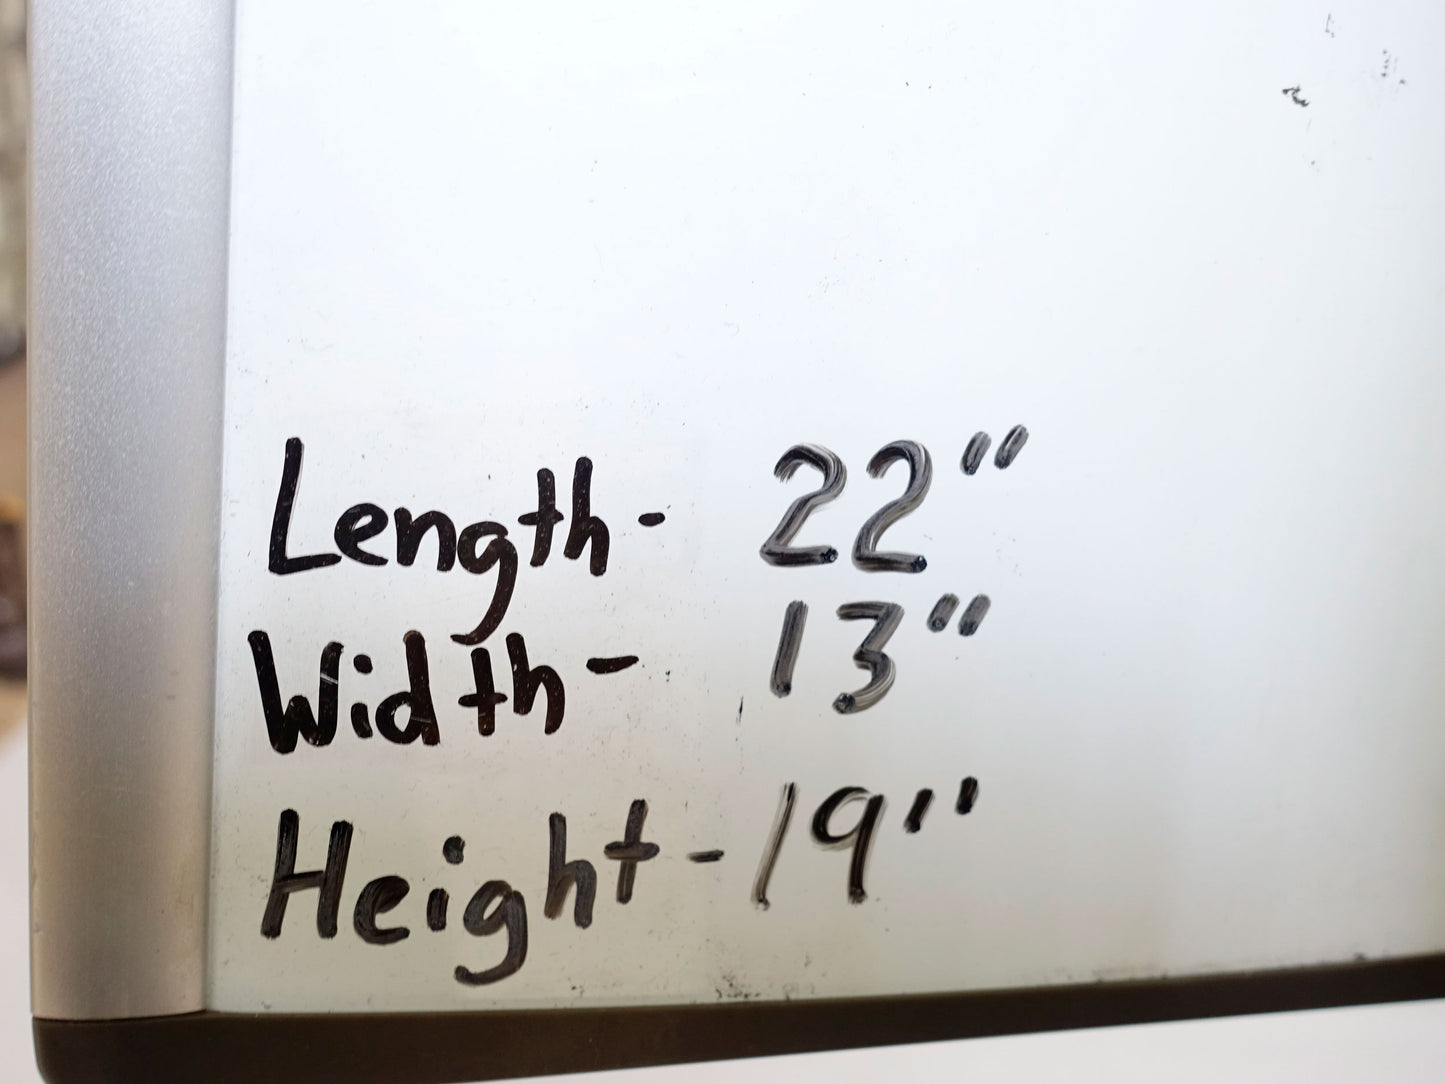 Length- 22"
Width- 13"
Height- 19"